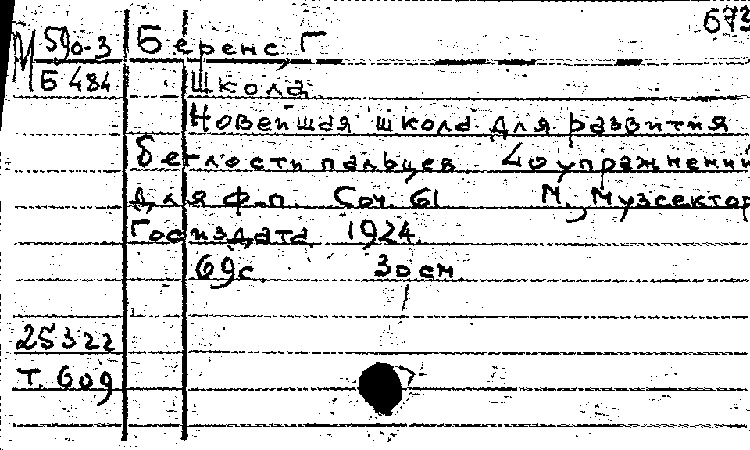 673
М 590-3 Беренс, Г.
Б 484 Школа
Новейшая школа для развития
беглости пальцев. 40 упражнений
для ф.п. Соч. 61 М., Музсектор
Госиздата 1924.
69с. 30 см
25322
Т. 609